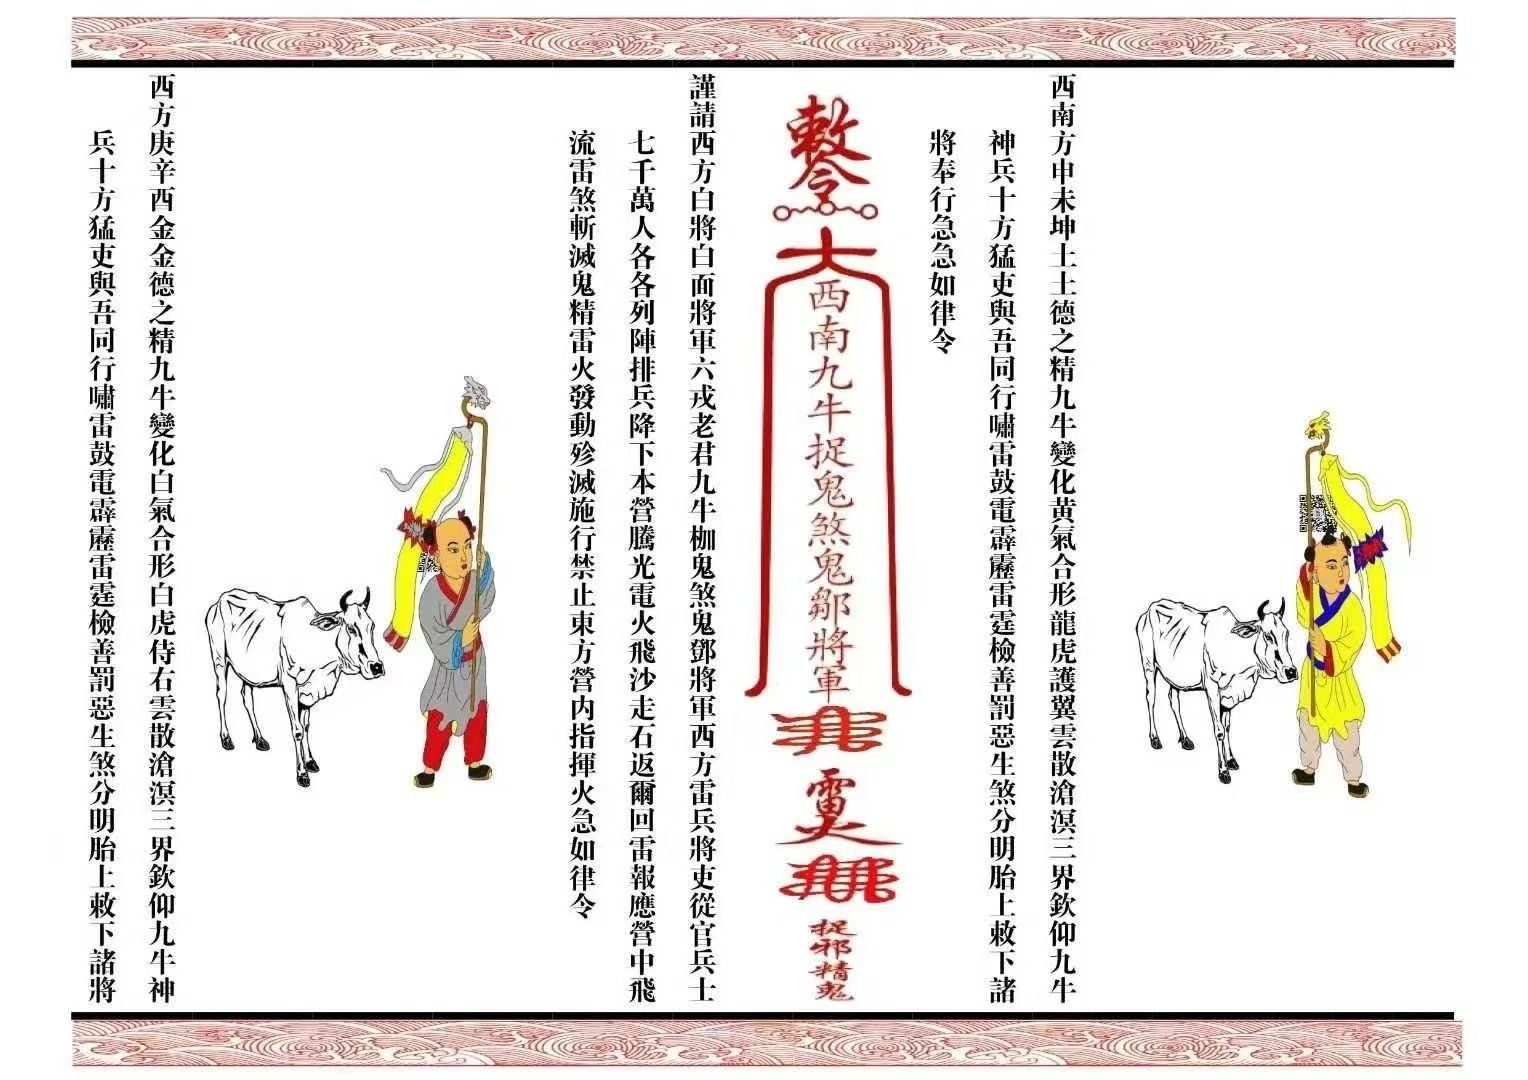 西南方申未坤土土德之精九牛變化黃氣合形龍虎護翼雲散滄溟三界欽仰九牛
神兵十方猛吏與吾同行嘯雷鼓電霹靂雷霆檢善罰惡生煞分明胎上敕下諸
將奉行急急如律令
敕令
大
西南九牛捉鬼煞鬼鄒將軍
雷火
捉邪精鬼
謹請西方白將白面將軍六戎老君九牛枷鬼煞鬼鄧將軍西方雷兵將吏從官兵士
七千萬人各各列陣排兵降下本營騰光電火飛沙走石返爾回雷報應營中飛
流雷煞斬滅鬼精雷火發動殄滅施行禁止東方營內指揮火急如律令
西方庚辛酉金金德之精九牛變化白氣合形白虎侍右雲散滄溟三界欽仰九牛神
兵十方猛吏與吾同行嘯雷鼓電霹靂雷霆檢善罰惡生煞分明胎上敕下諸將